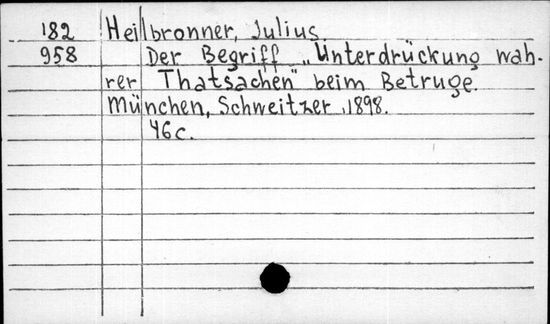 182 Heilbronner, Julius.
958 Der Begriff „Unterdrückung wah-
rer Thatsachen" beim Betruge.
München, Schweitzer, 1898.
46c.